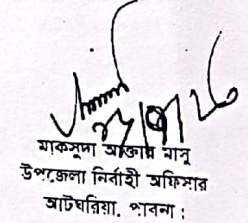 মাকসুদা আক্তার মাসু
উপজেলা নির্বাহী অফিসার
আটঘরিয়া, পাবনা।